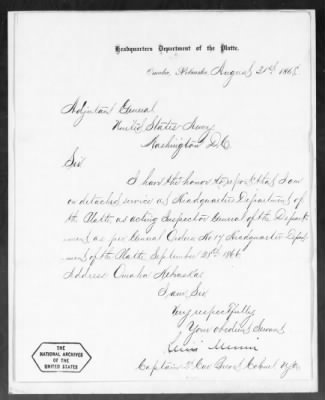 Headquarters Department of the Platte.
Omaha, Nebraska, August 31st 186
Adjutant General
United States Army
Washington D.C.
Sir
I have the honor to report that I am
on detached service at Headquarters Department of
the Platte as acting Inspector General of the Depart-
ment as per General Orders No 17 Headquarters Depart-
ment of the Platte, September 28th 1866
Address Omaha Nebraska
I am, Sir,
Very respectfully
Your obedient Servant
Captain 2d Cav Brevet Colonel USA
THE
NATIONAL ARCHIVES
OF THE
UNITED STATES